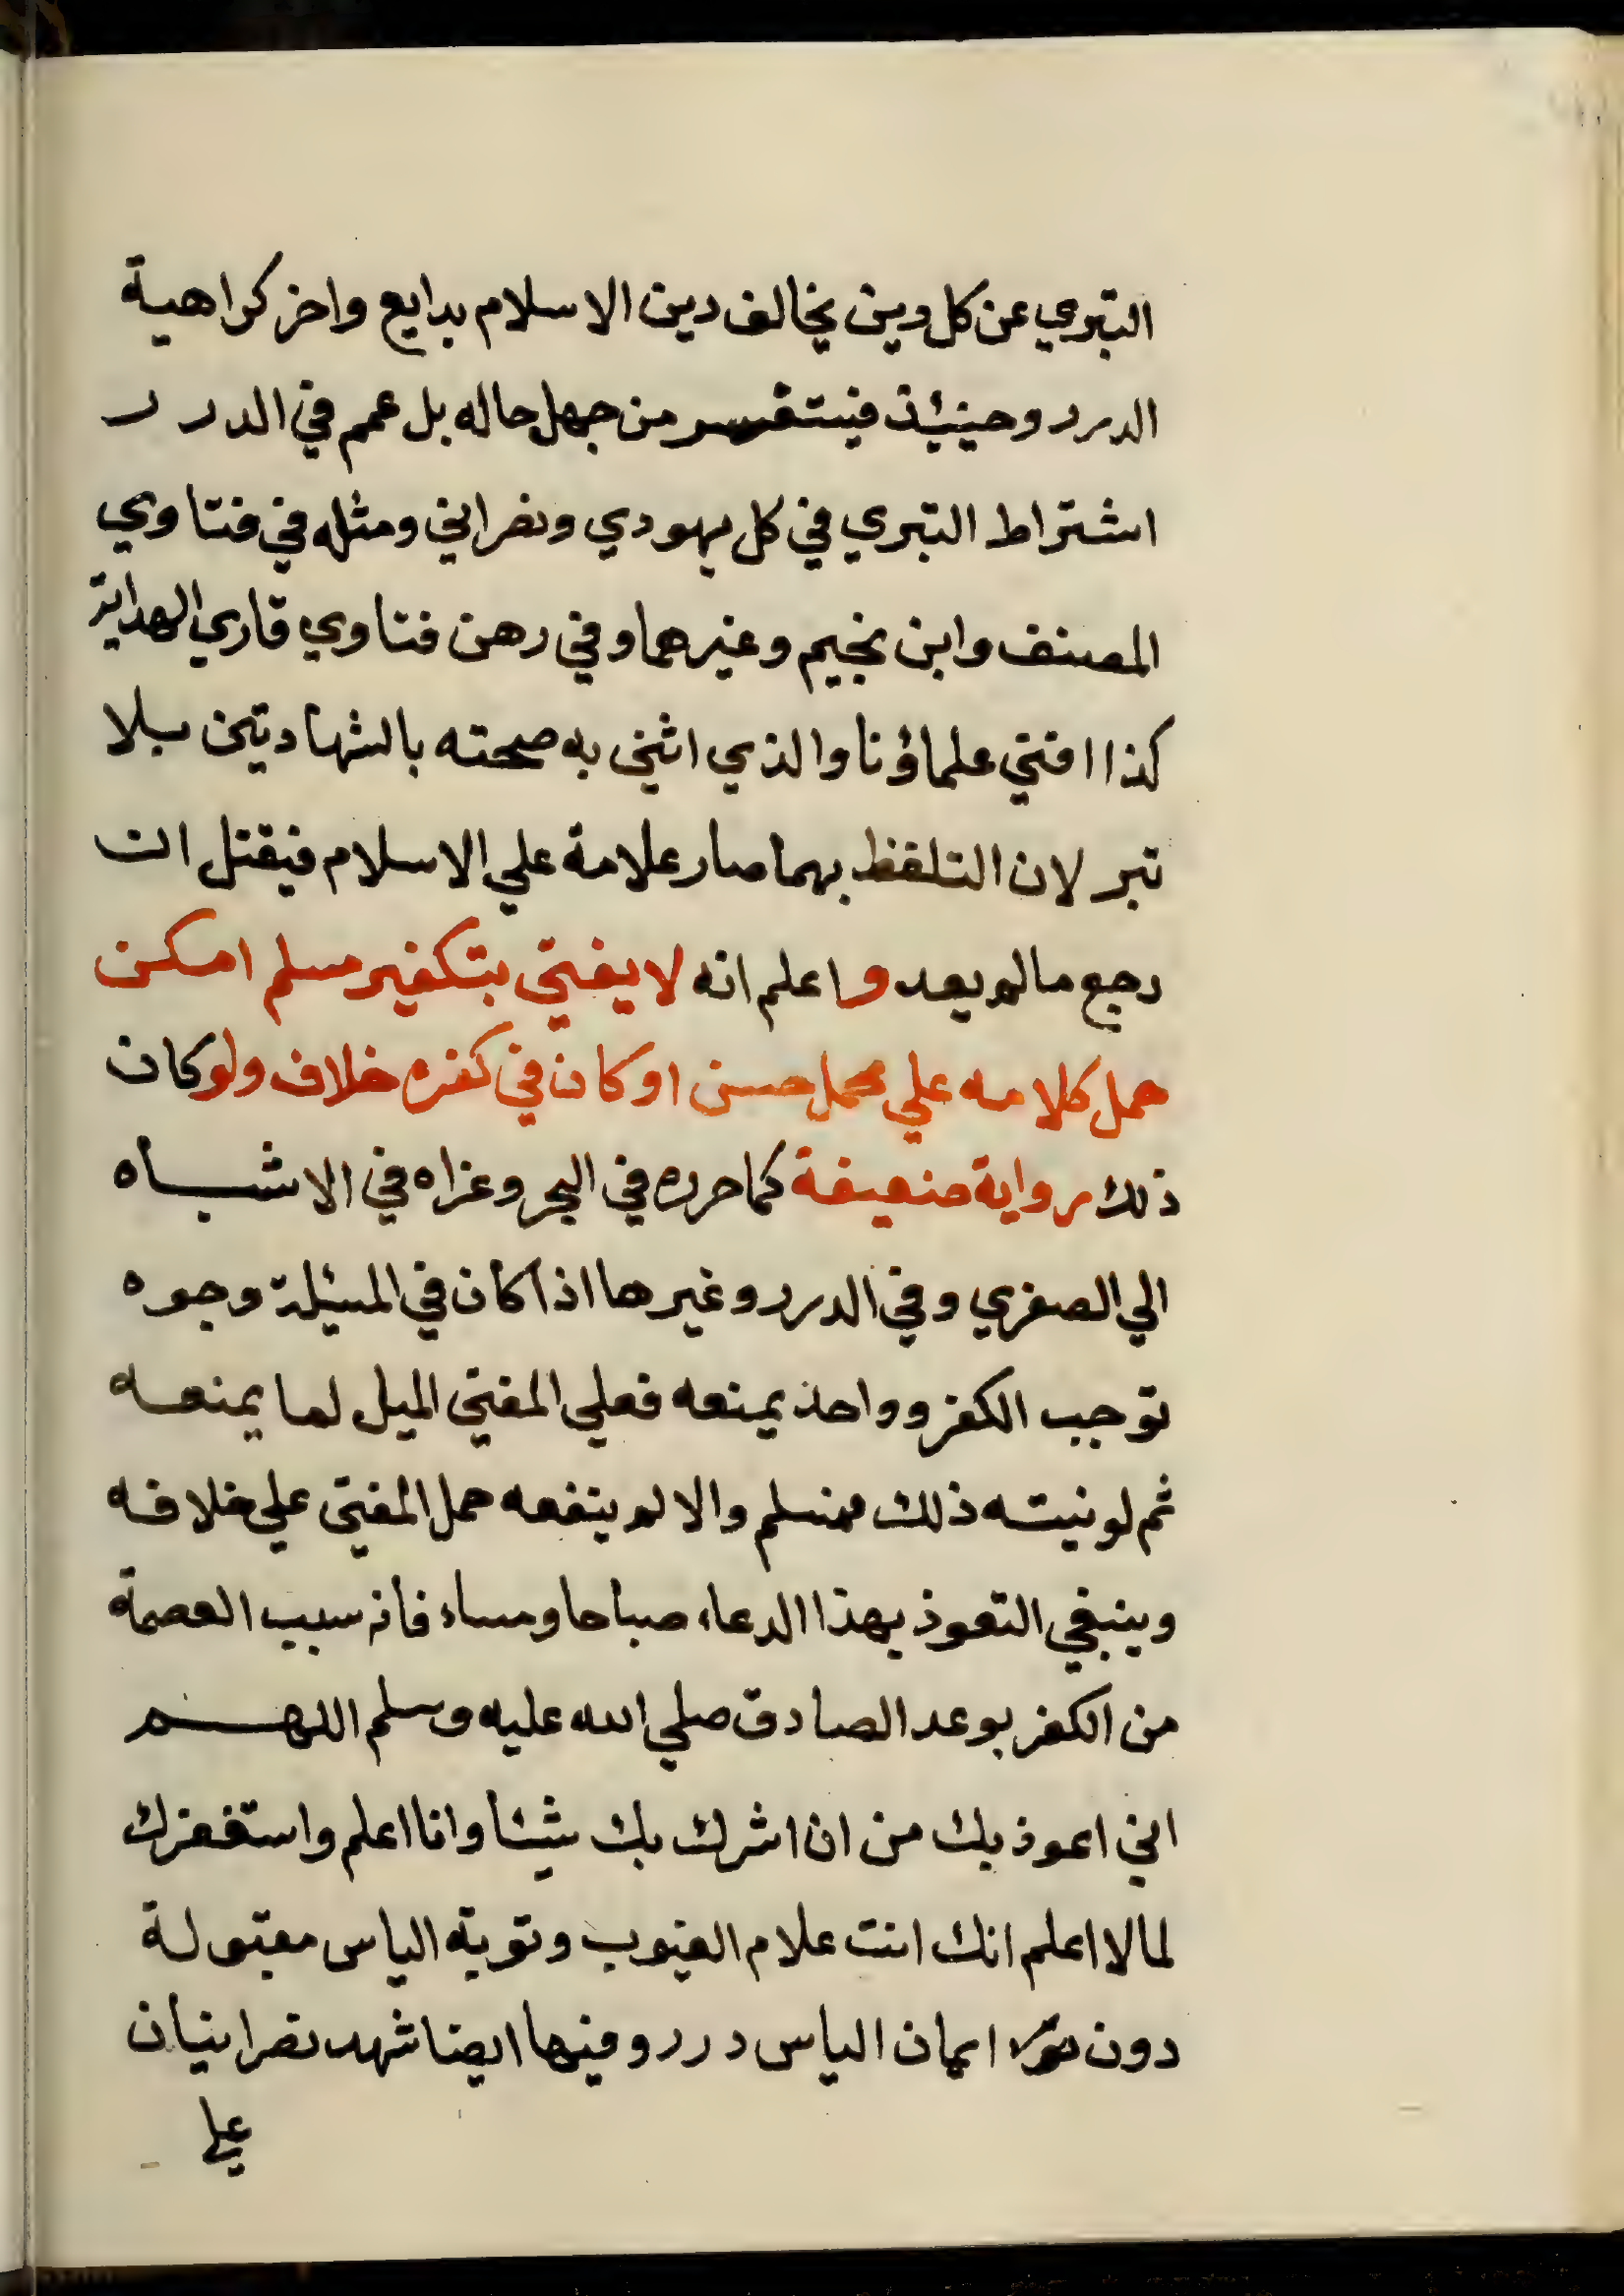 التبري عن كل دين يخالف دين الاسلام بدايع واخر كراهية
الدرر وحينئذ فيستفسر من جهل حاله بل عمم في الدرر
اشتراط التبري في كل يهودي ونصراني ومثله في فتاوي
المصنف وابن نجيم وغيرهما وفي رهن فتاوي قاري الهداية
كذا افتي علماؤنا والذي افتي به صحته بالشهادتين بلا
تبر لان التلفظ بهما صار علامة علي الاسلام فيقتل ان
رجع مالم يعد واعلم انه لا يفتي بتكفير مسلم امكن
حمل كلامه علي محمل حسن او كان في كفره خلاف ولو كان
ذلك رواية ضعيفة كما حرره في البحر وعزاه في الاشباه
الي الصغري وفي الدرر وغيرها اذا كان في المسئلة وجوه
توجب الكفر وواحد يمنعه فعلي المفتي الميل لما يمنعه
ثم لو نيته ذلك فمسلم والا لم ينفعه حمل المفتي علي خلافه
وينبغي التعوذ بهذا الدعاء صباحا ومساء فانه سبب العصمة
من الكفر بوعد الصادق صلي الله عليه وسلم اللهم
اني اعوذ بك من ان اشرك بك شيئا وانا اعلم واستغفرك
لما لا اعلم انك انت علام الغيوب وتوبة الياس مقبولة
دون ايمان الياس درر وفيها ايضا شهد نصرانيان
علي